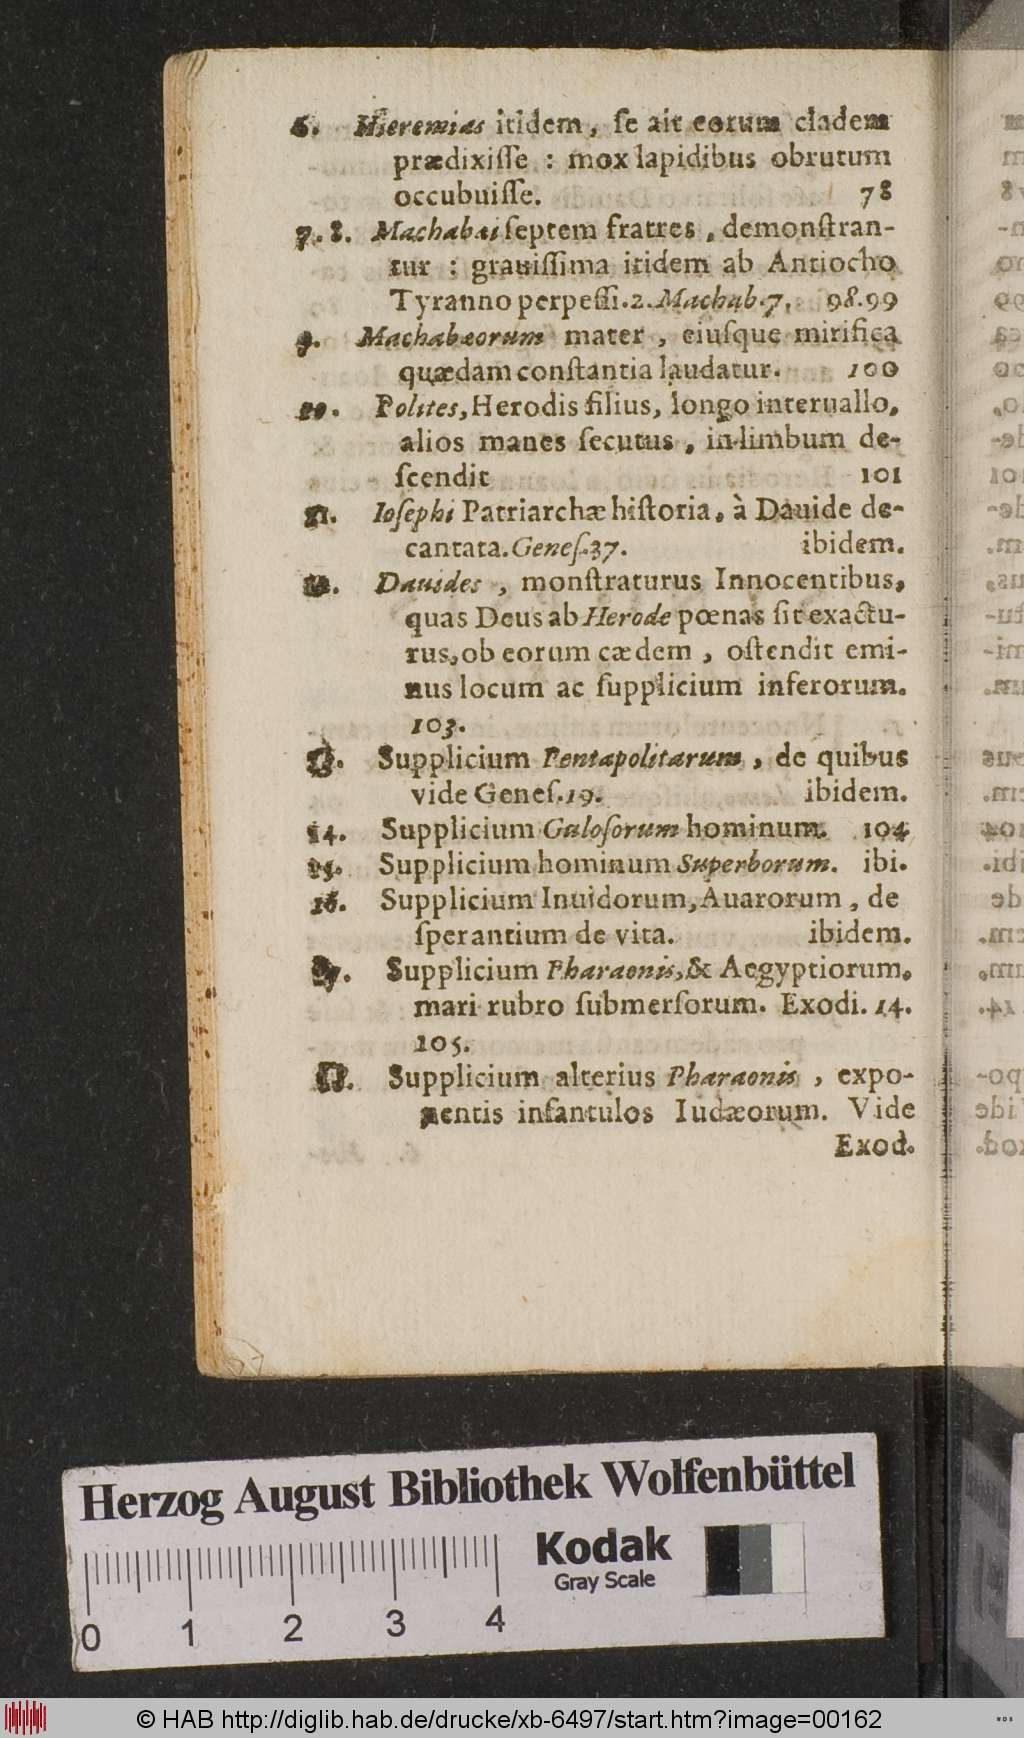 6. Hieremias itidem, ſe ait eorum cladem
prædixiſſe : mox lapidibus obrutum
occubuiſſe. 78
7.8. Machabæi ſeptem fratres, demonſtran-
tur : grauiſſima itidem ab Antiocho
Tyranno perpeſſi.2.Machab.7. 98.99
9. Machabæorum mater, eiuſque mirifica
quædam conſtantia laudatur. 100
10. Polites, Herodis filius, longo interuallo,
alios manes ſecutus, in limbum de-
ſcendit 101
11. Ioſephi Patriarchæ hiſtoria, à Dauide de-
cantata. Geneſ.37. ibidem.
12. Dauides, monſtraturus Innocentibus,
quas Deus ab Herode pœnas ſit exactu-
rus, ob eorum cædem, oſtendit emi-
nus locum ac ſupplicium inferorum.
103.
13. Supplicium Pentapolitarum, de quibus
vide Geneſ.19. ibidem.
14. Supplicium Guloſorum hominum. 104
15. Supplicium hominum Superborum. ibi.
16. Supplicium Inuidorum, Auarorum, de
ſperantium de vita. ibidem.
17. Supplicium Pharaonis, & Aegyptiorum,
mari rubro ſubmerſorum. Exodi. 14.
105.
18. Supplicium alterius Pharaonis, expo-
nentis infantulos Iudæorum. Vide
Exod.
Herzog August Bibliothek Wolfenbüttel
Kodak
Gray Scale
0 1 2 3 4
© HAB http://diglib.hab.de/drucke/xb-6497/start.htm?image=00162